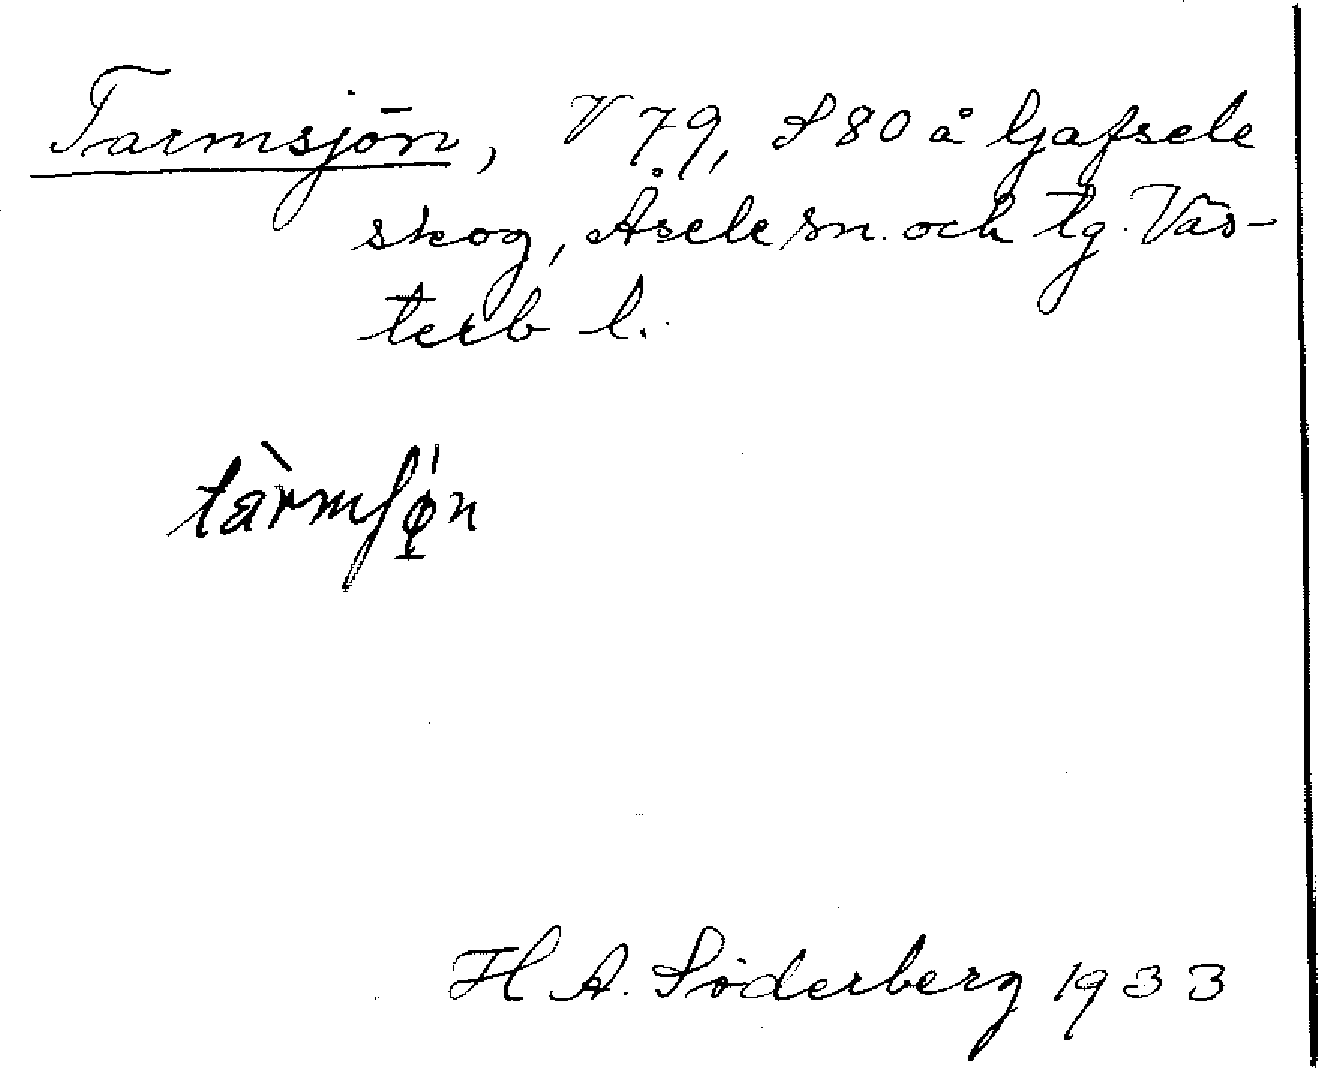 Tarmsjön, V 79, S 80 å Gafsele
skog, Åsele sn. och tg. Väs-
terb l.
tàrmʃǿ̱n
H A. Söderberg 1933